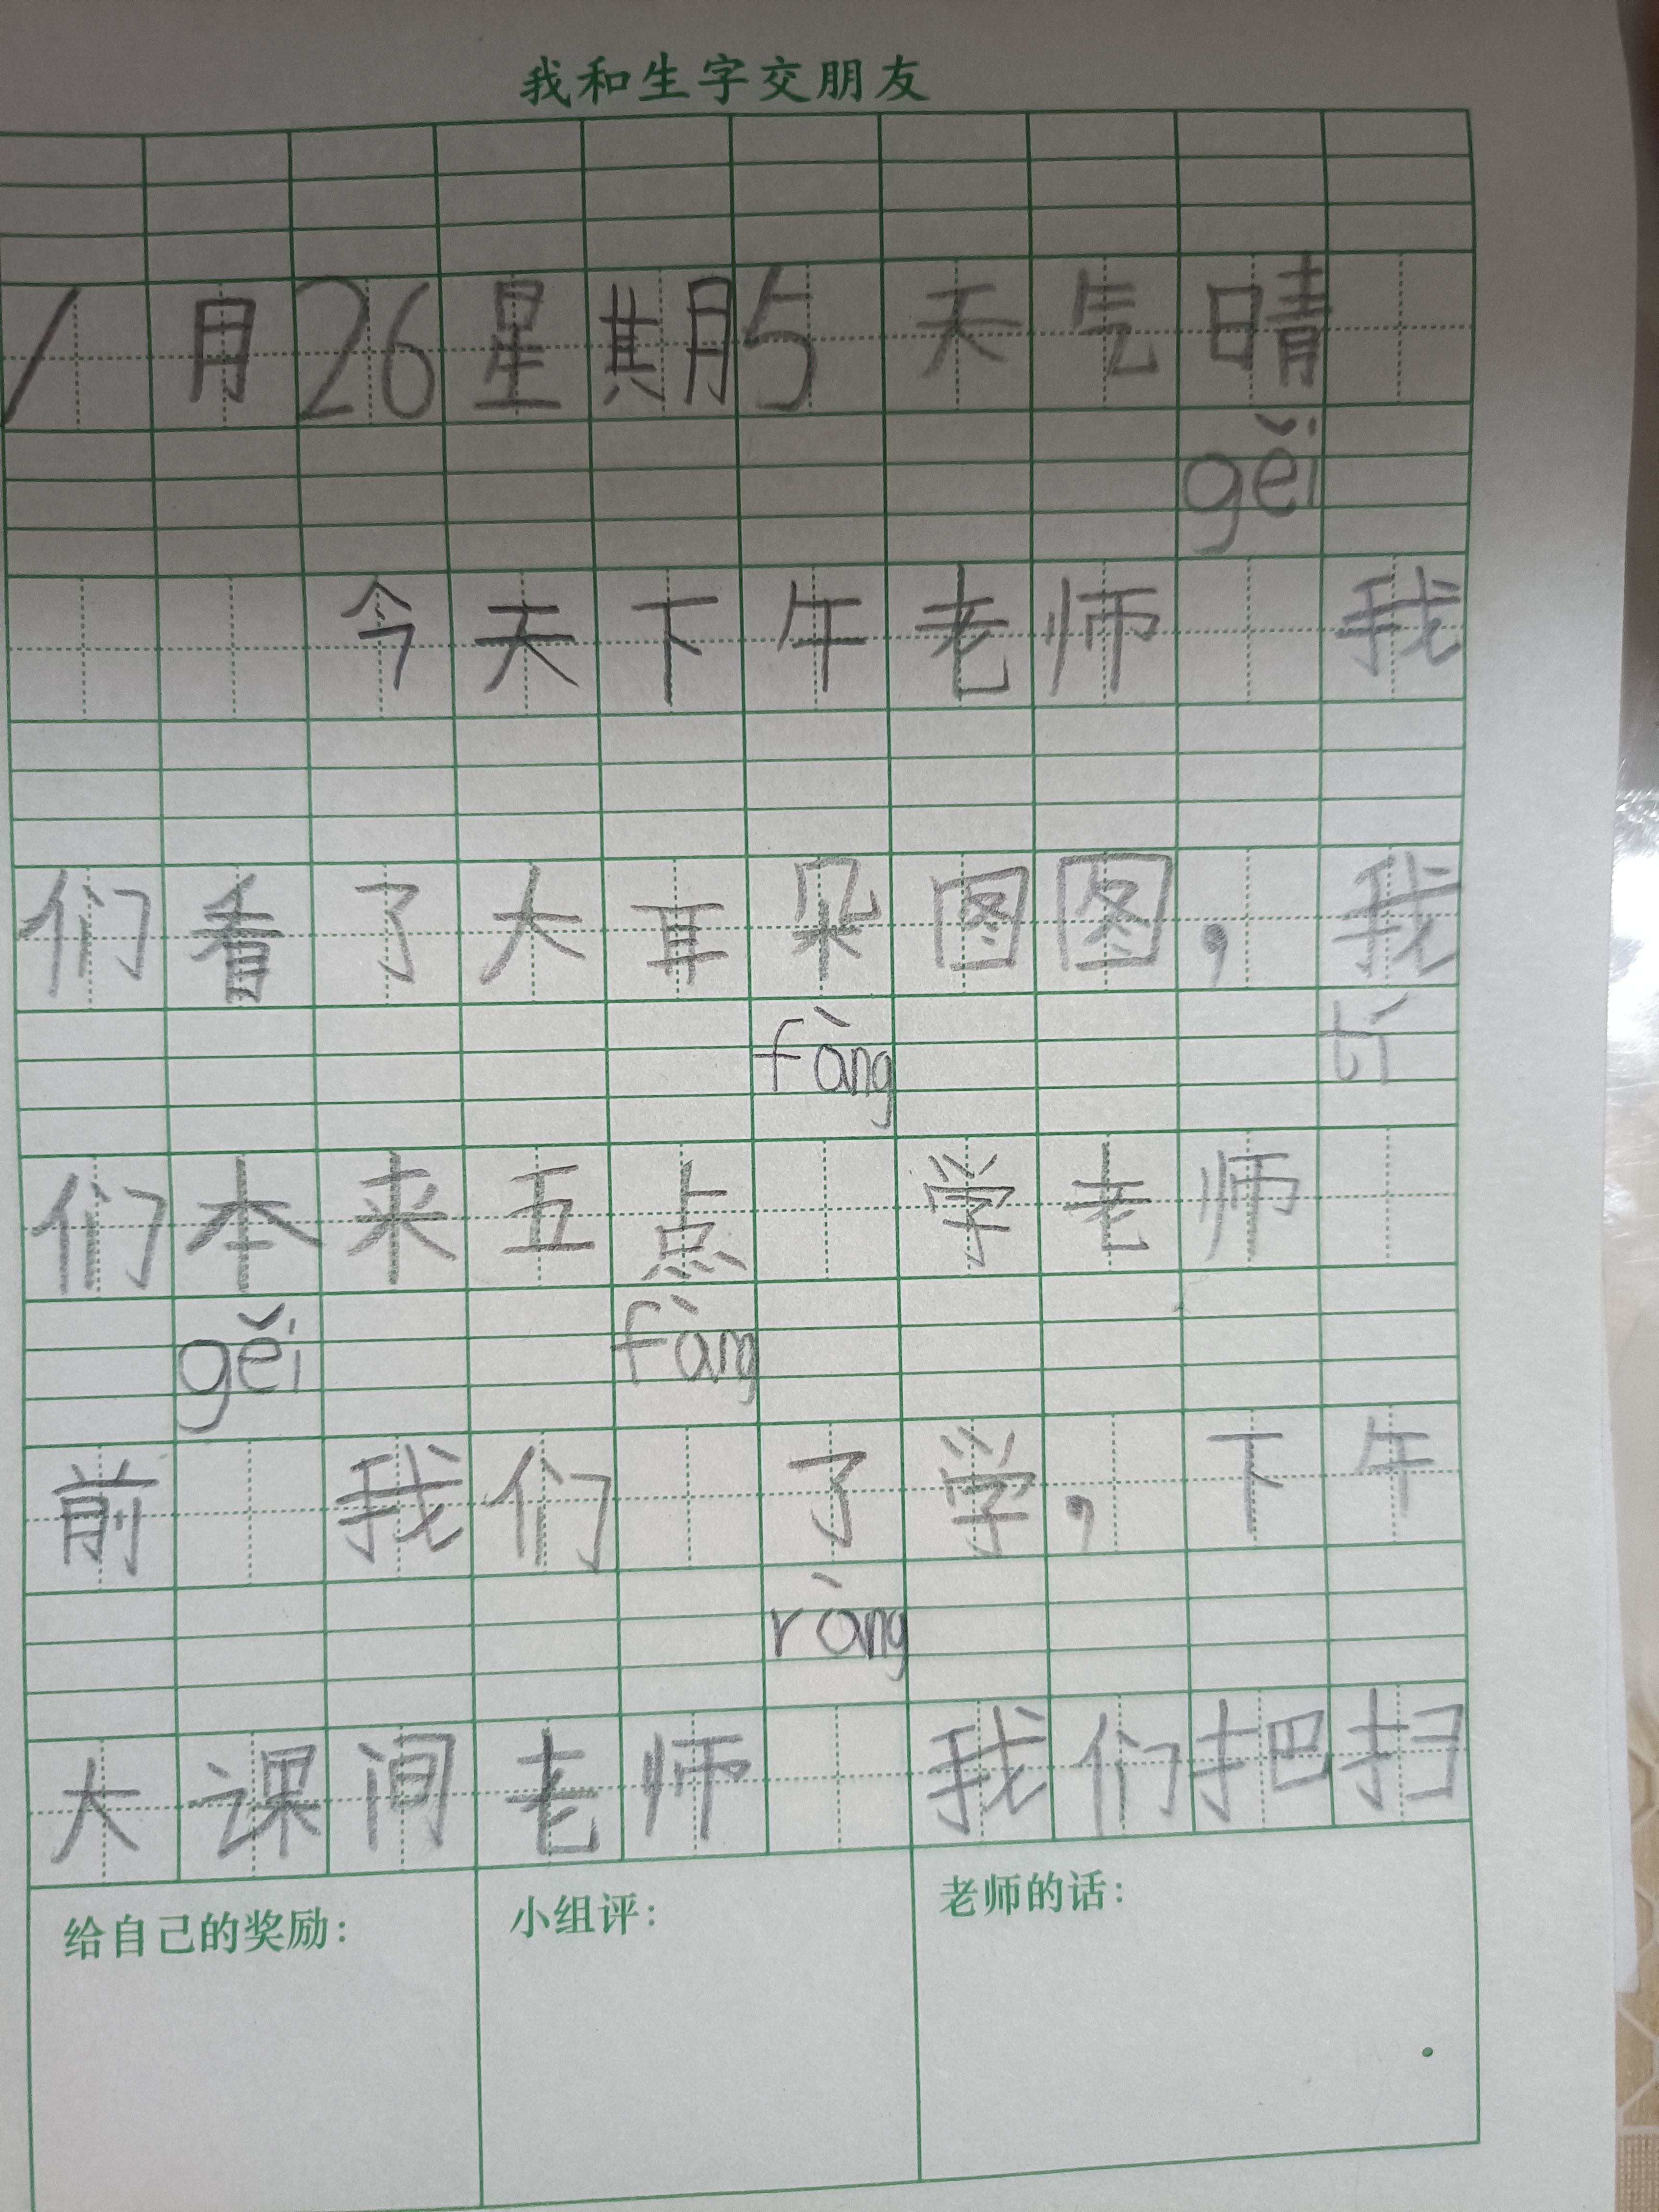 我和生字交朋友
1月26星期5天气晴
gěi
今天下午老师 我
们看了大耳朵图图，我
fàng tí
们本来五点 学老师
gěi fàng
前 我们 了学，下午
ràng
大课间老师 我们把扫
给自己的奖励：
小组评：
老师的话：